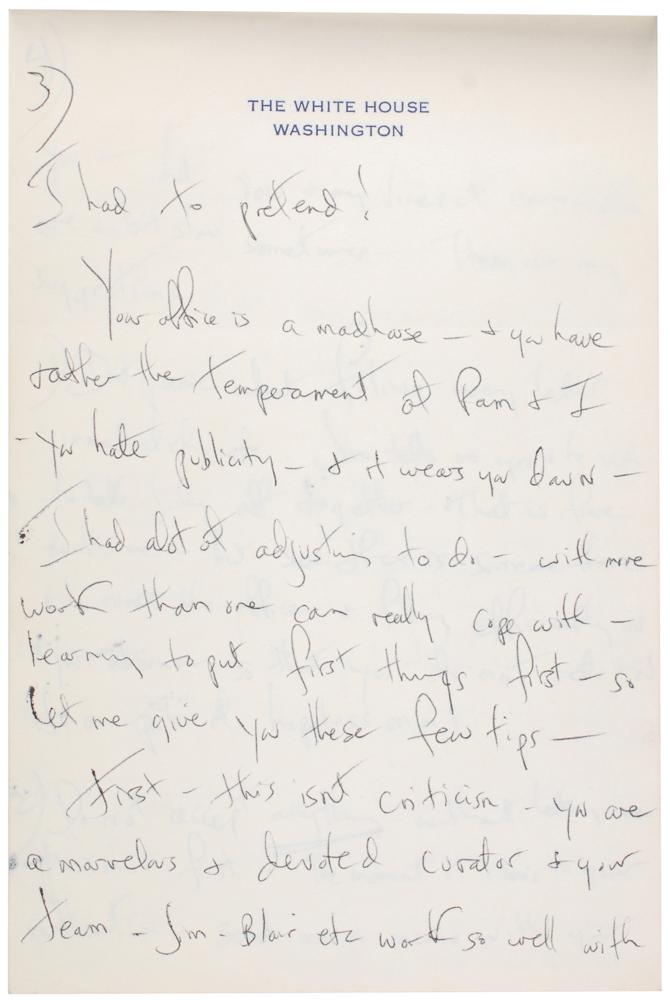 3)
THE WHITE HOUSE
WASHINGTON
I had to pretend!
Your office is a madhouse — & you have
rather the temperament of Pam & I
- you hate publicity — & it wears you down —
I had alot of adjusting to do — with more
work than one can really cope with —
learning to put first things first — so
let me give you these few tips —
First — this isnt criticism — you are
a marvelous & devoted curator & your
team — Jim - Blair etc work so well with